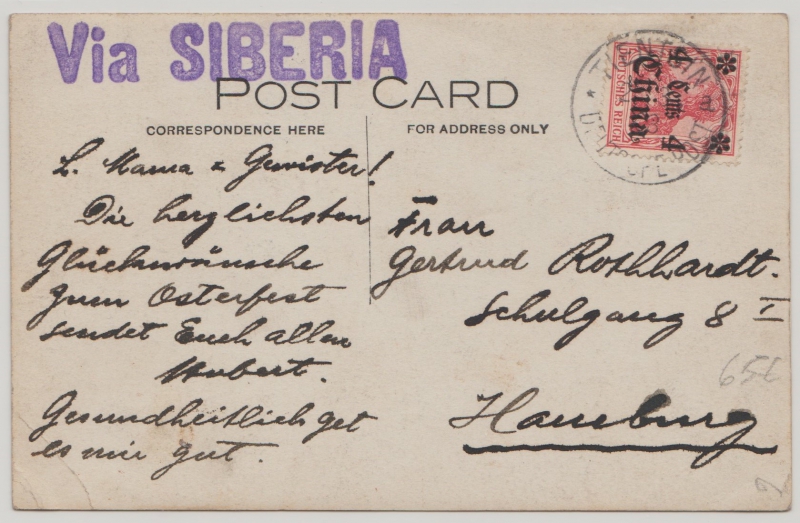 Via SIBERIA
POST CARD
CORRESPONDENCE HERE
FOR ADDRESS ONLY
DEUTSCHES REICH
4 Cents 4
China
L. Mama & Gewister!
Die herzlichsten
Glückwünsche
zum Osterfest
sendet Euch allen
Hubert.
Gesundheitlich get
es mir gut.
Frau
Gertrud Rothhardt.
Schulgang 8 I
Hamburg